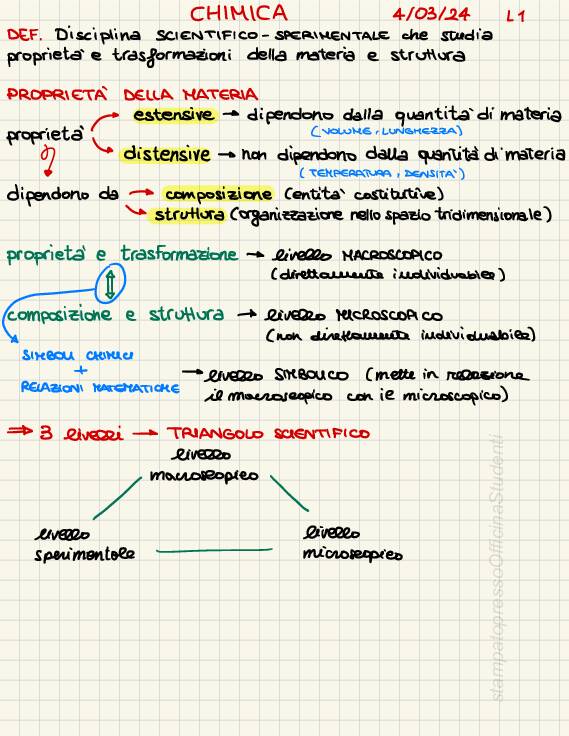 CHIMICA 4/03/24 L1
DEF. Disciplina SCIENTIFICO-SPERIMENTALE che studia
proprietà e trasformazioni della materia e struttura
PROPRIETÀ DELLA MATERIA
estensive → dipendono dalla quantità di materia
(VOLUME, LUNGHEZZA)
proprietà
distensive → non dipendono dalla quantità di materia
(TEMPERATURA, DENSITÀ)
dipendono da → composizione (entità costitutive)
struttura (organizzazione nello spazio tridimensionale)
proprietà e trasformazione → livello MACROSCOPICO
(direttamente individuabile)
composizione e struttura → livello MICROSCOPICO
(non direttamente individuabile)
SIMBOLI CHIMICI
+
RELAZIONI MATEMATICHE
→ livello SIMBOLICO (mette in relazione
il macroscopico con il microscopico)
⇒ 3 livelli → TRIANGOLO SCIENTIFICO
livello
macroscopico
livello
sperimentale
livello
microscopico
stampatopressoOfficinaStudenti